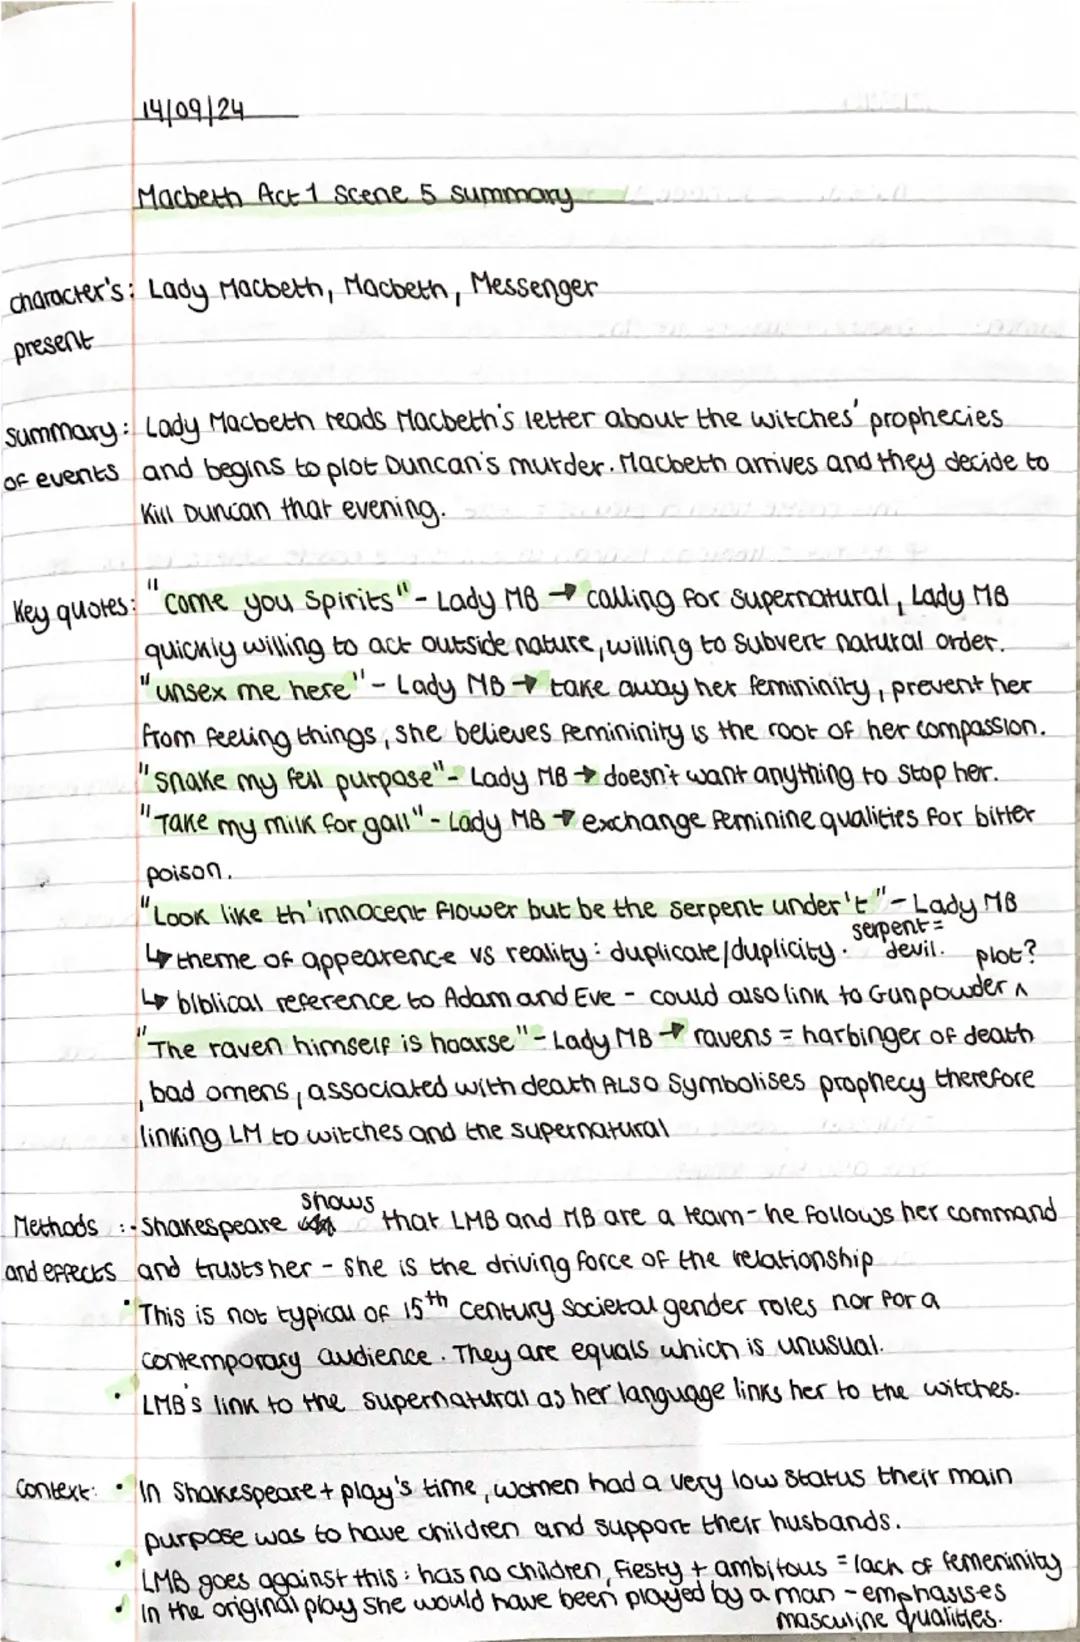 14/09/24
Macbeth Act 1 Scene 5 summary
character's: Lady Macbeth, Macbeth, Messenger
present
summary: Lady Macbeth reads Macbeth's letter about the witches' prophecies
of events and begins to plot Duncan's murder. Macbeth arrives and they decide to
Kill Duncan that evening.
Key quotes: "come you spirits" - Lady MB → calling for supernatural, Lady MB
quickly willing to act outside nature, willing to subvert natural order.
"unsex me here" - Lady MB → take away her femininity, prevent her
from feeling things, she believes femininity is the root of her compassion.
"Shake my fell purpose" - Lady MB → doesn't want anything to stop her.
"Take my milk for gall" - Lady MB → exchange feminine qualities for bitter
poison.
"Look like th'innocent flower but be the serpent under't" - Lady MB
↳ theme of appearence vs reality: duplicate/duplicity. serpent = devil.
↳ biblical reference to Adam and Eve - could also link to Gunpowder ^ plot?
"The raven himself is hoarse" - Lady MB → ravens = harbinger of death
, bad omens, associated with death ALSO symbolises prophecy therefore
linking LM to witches and the supernatural
Methods :- Shakespeare shows that LMB and MB are a team - he follows her command
and effects and trusts her - she is the driving force of the relationship
• This is not typical of 15th century societal gender roles nor for a
contemporary audience. They are equals which is unusual.
• LMB's link to the supernatural as her language links her to the witches.
Context: • In Shakespeare + play's time, women had a very low status their main
purpose was to have children and support their husbands.
• LMB goes against this: has no children, fiesty + ambitous = lack of femeninity
• In the original play she would have been played by a man - emphasises
masculine qualities.